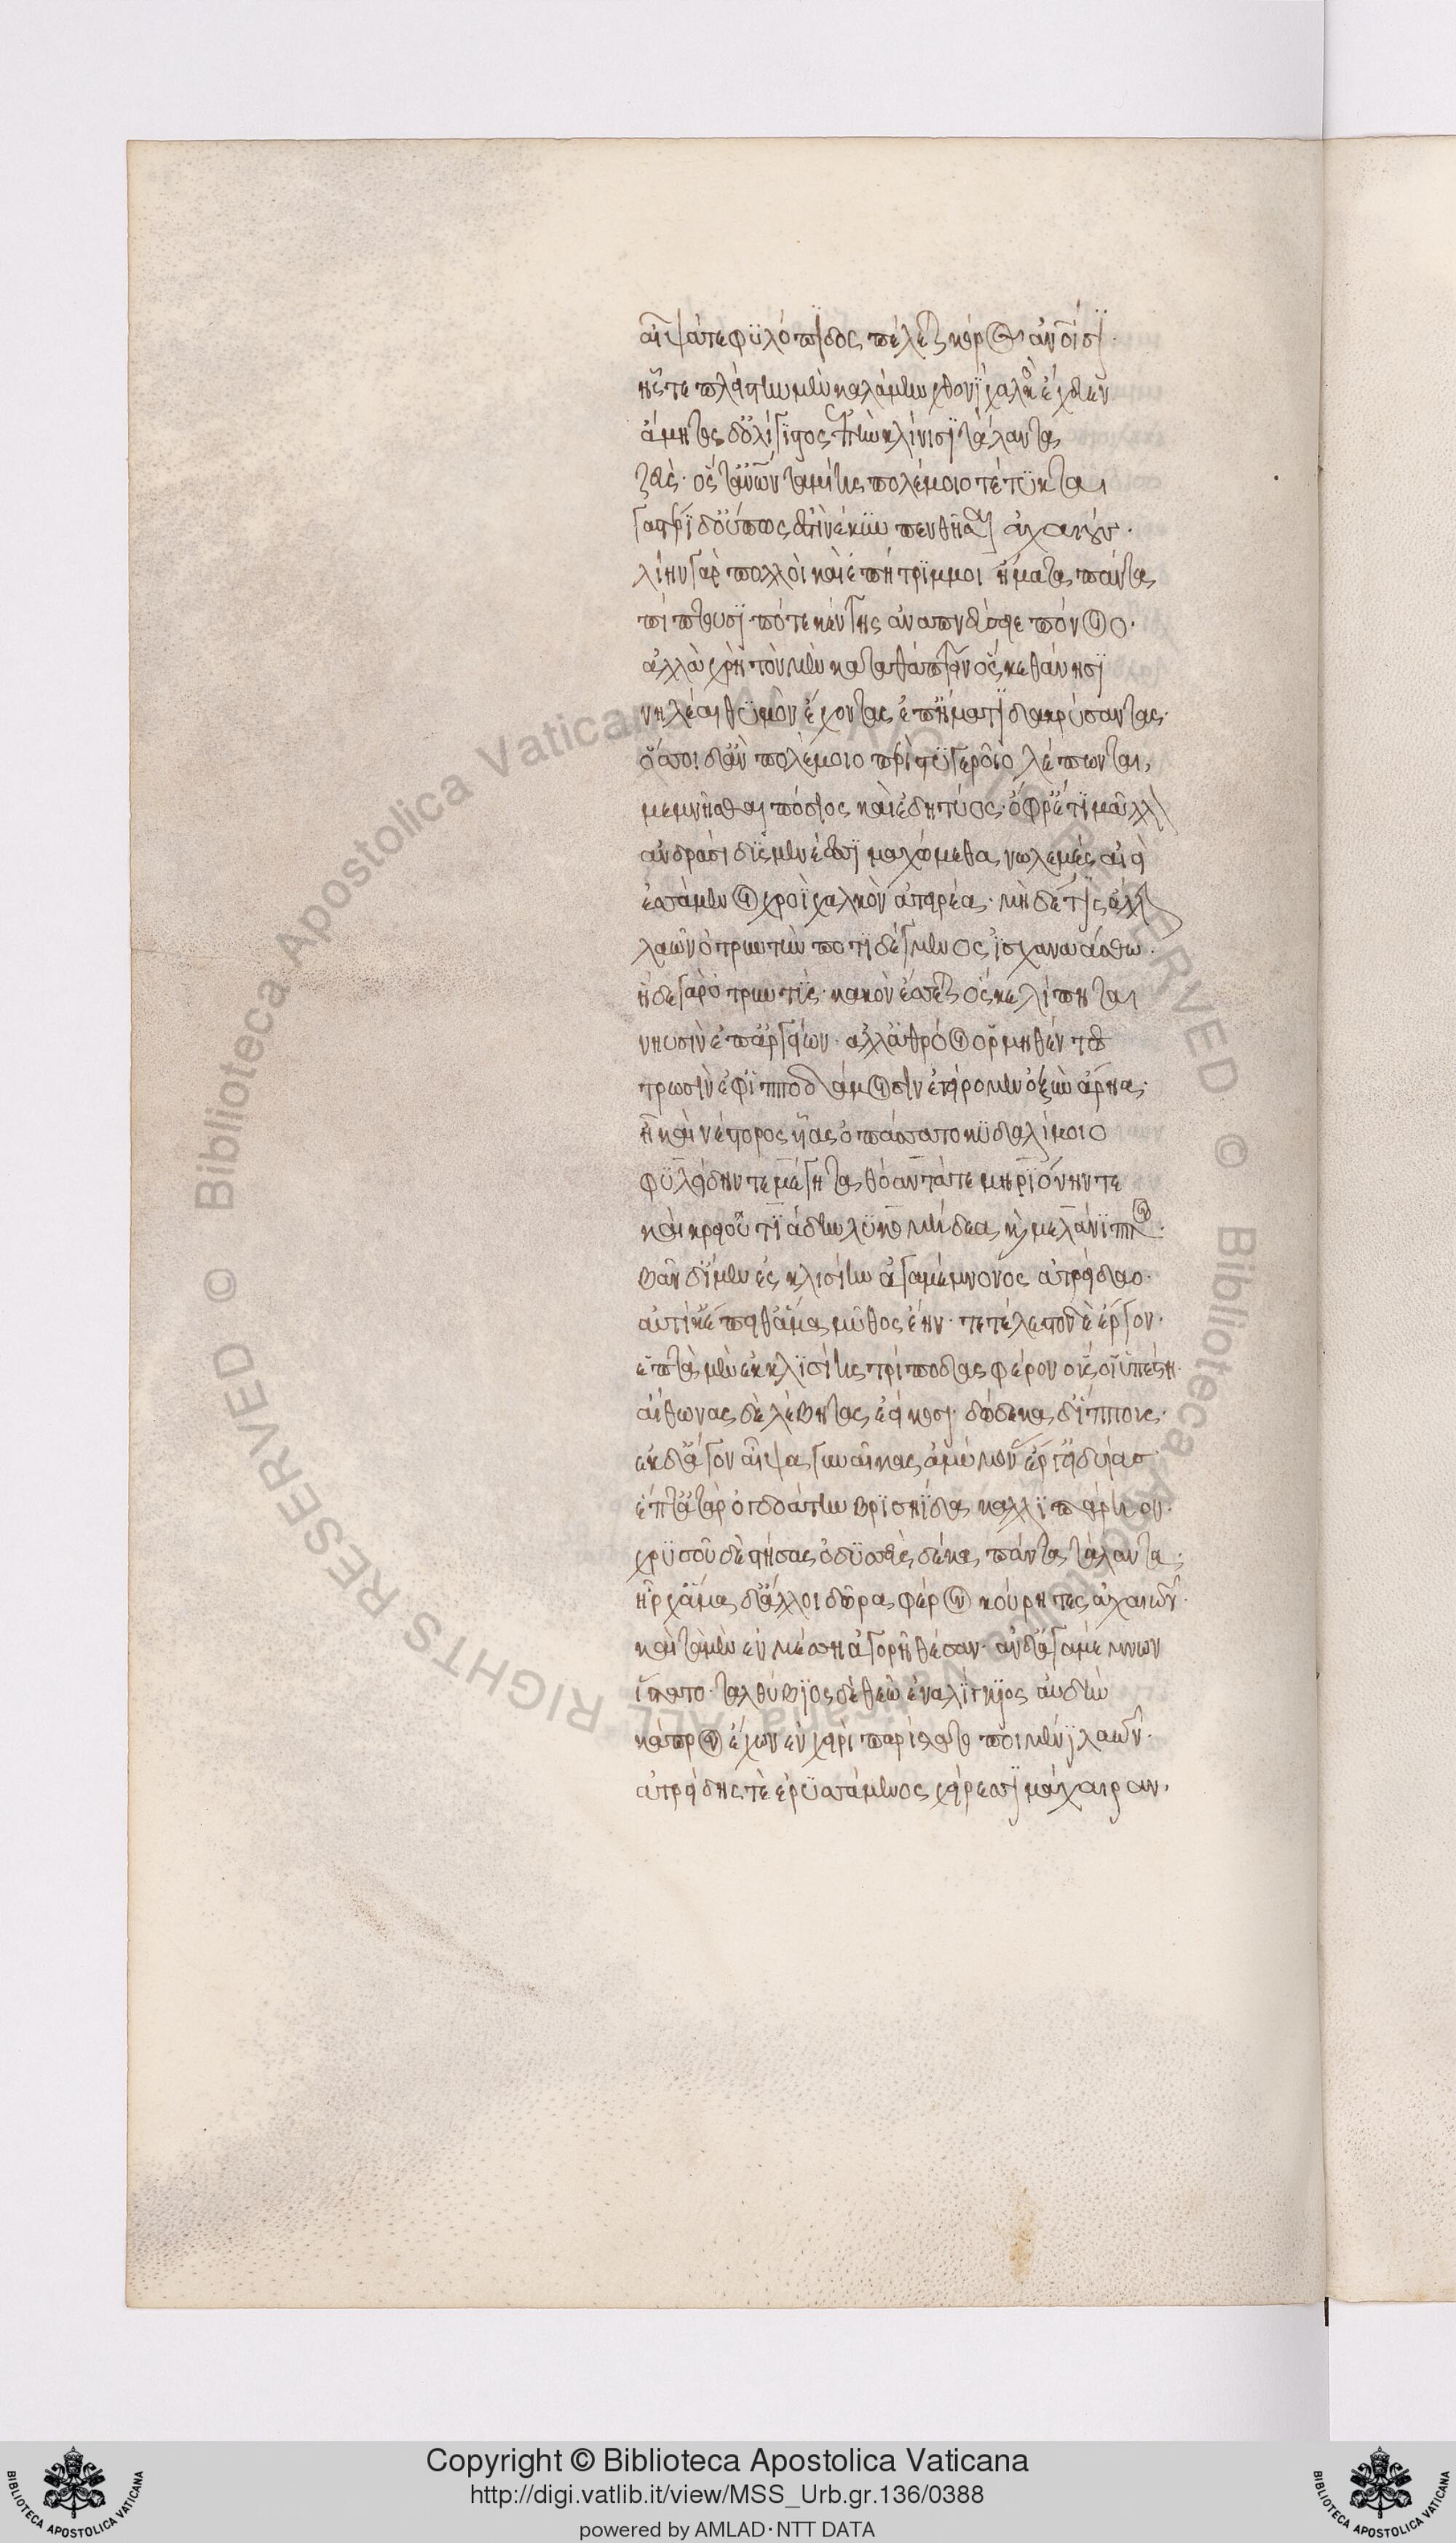 αἶψά τε φυλόπιδος πέλεται κόρος ἀνθρώποισι·
ἧς τε πλείστην μὲν καλάμην χθονὶ χαλκὸς ἔχευεν
ἄμητος δ' ὀλίγιστος ἐπὴν κλίνῃσι τάλαντα
ζεὺς· ὅς τ' ἀνθρώπων ταμίης πολέμοιο τέτυκται
γαστρὶ δ' οὔπως ἐστὶ νέκυν πενθῆσαι ἀχαιούς·
λίην γὰρ πολλοὶ καὶ ἐπήτριμμοι ἤματα πάντα
πίπτουσι πότε κέν τις ἀναπνεύσειε πόνοιο·
ἀλλὰ χρὴ τὸν μὲν καταθάπτειν ὅς κε θάνῃσι
νηλέα θυμὸν ἔχοντας ἐπ' ἤματι δακρύσαντας·
ὅσσοι δ' ἂν πολέμοιο περὶ στυγεροῖο λίπωνται,
μεμνῆσθαι πόσιος καὶ ἐδητύος· ὄφρ' ἔτι μᾶλλον
ἀνδράσι δυσμενέεσσι μαχώμεθα νωλεμὲς αἰεὶ
ἑσσάμενοι χροῒ χαλκὸν ἀτειρέα· μὴ δέ τις ἄλλην
λαῶν ὀτρυντὺν ποτιδέγμενος ἰσχαναάσθω·
ἥδε γὰρ ὀτρυντὺς· κακὸν ἔσσεται ὅς κε λίπηται
νηυσὶν ἐπ' ἀργείων· ἀλλ' ἀθρόοι ὁρμηθέντες
τρωσὶν ἐφ' ἱπποδάμοισιν ἐγείρομεν ὀξὺν ἄρηα·
ἦ καὶ νέστορος υἷας ὀπάσσατο κυδαλίμοιο
φυλείδην τε μέγητα θόαντά τε μηριόνην τε
καὶ κρειοντιάδην λυκομήδεα καὶ μελάνιππον·
βὰν δ' ἴμεν ἐς κλισίην ἀγαμέμνονος ἀτρείδαο·
αὐτίκ' ἔπειθ' ἅμα μῦθος ἔην· τετέλεστο δὲ ἔργον·
ἑπτὰ μὲν ἐκ κλισίης τρίποδας φέρον οὕς οἱ ὑπέστη·
αἴθωνας δὲ λέβητας ἐείκοσι· δώδεκα δ' ἵππους·
ἐκ δ' ἄγον αἶψα γυναῖκας ἀμύμονα ἔργ' εἰδυίας
ἕπτ' ἀτὰρ ὀγδοάτην βρισηΐδα καλλιπάρῃον·
χρυσοῦ δὲ στήσας ὀδυσσεὺς δέκα πάντα τάλαντα·
ἦρχ' ἅμα δ' ἄλλοι δῶρα φέρον κούρητες ἀχαιῶν·
καὶ τὰ μὲν ἐν μέσσῃ ἀγορῇ θέσαν· ἂν δ' ἀγαμέμνων
ἵστατο· ταλθύβιος δὲ θεῷ ἐναλίγκιος αὐδὴν
κάπρον ἔχων ἐν χειρὶ παρίστατο ποιμένι λαῶν·
ἀτρείδης τὲ ἐρυσσάμενος χείρεσσι μάχαιραν,
Copyright © Biblioteca Apostolica Vaticana
http://digi.vatlib.it/view/MSS_Urb.gr.136/0388
powered by AMLAD·NTT DATA